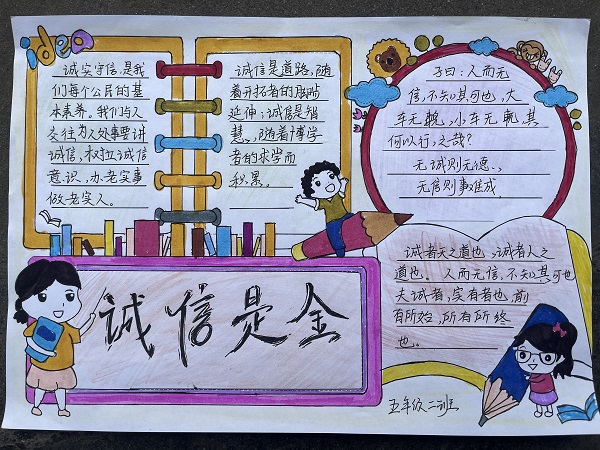 idea
诚实守信,是我
们每个公民的基
本素养。我们与人
交往为人处事要讲
诚信,树立诚信
意识,办老实事
做老实人。
诚信是道路,随
着开拓者的脚步
延伸;诚信是智
慧,随着博学
者的求学而
积累。
子曰:人而无
信,不知其可也,大
车无輗,小车无軏,其
何以行之哉?
无诚则无德、,
无信则事难成
诚者天之道也,诚者人之
道也。人而无信,不知其可也
夫诚者,实有者也,前
有所始,所有所终
也。
诚信是金
五年级二班